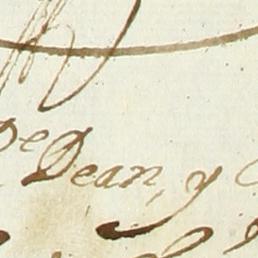 De Dean, y